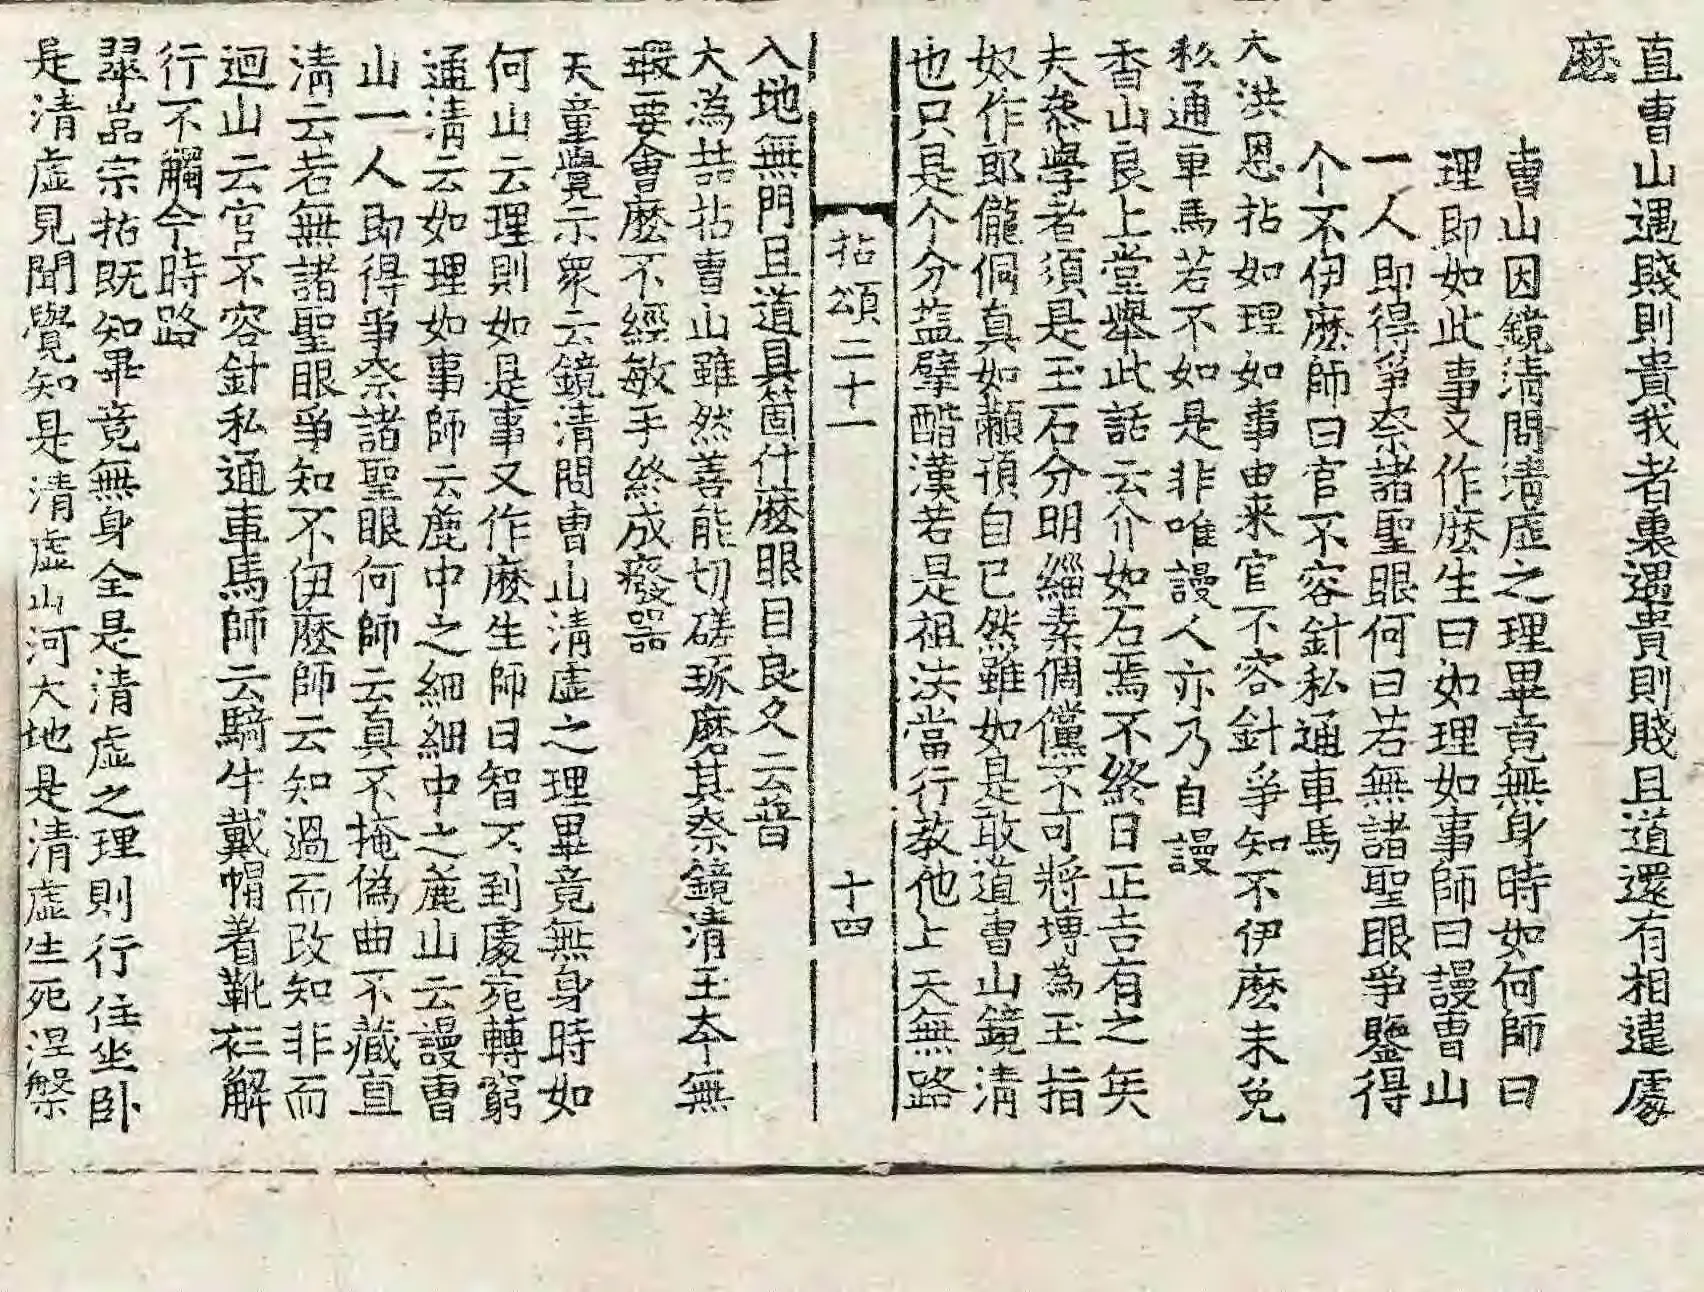 直曹山遇賤則貴我者裏遇貴則賤且道還有相違處
麽
曹山因鏡清問清虛之理畢竟無身時如何師曰
理即如此事又作麽生曰如理如事師曰謾曹山
一人即得爭奈諸聖眼何曰若無諸聖眼爭鑒得
个不伊麽師曰官不容針私通車馬
大洪恩拈如理如事由来官不容針爭知不伊麽未免
私通車馬若不如是非唯謾人亦乃自謾
香山良上堂舉此話云介如石焉不終日正吉有之矣
夫叅學者須是玉石分明緇素倜儻不可將塼為玉指
奴作郎儱侗真如顢頇自已然雖如是敢道曹山鏡清
也只是个分葢擘酷漢若是祖法當行教他上天無路
拈頌二十一 十四
入地無門且道具箇什麽眼目良久云普
大溈喆拈曹山雖然善能切磋琢磨其奈鏡清玉本無
瑕要會麽不經敏手終成癈器
天童覺示衆云鏡清問曹山清虛之理畢竟無身時如
何山云理則如是事又作麽生師曰智不到處宛轉窮
通清云如理如事師云麁中之細細中之麁山云謾曹
山一人即得爭奈諸聖眼何師云真不掩偽曲不藏直
清云若無諸聖眼爭知不伊麽師云知過而改知非而
迴山云官不容針私通車馬師云騎牛戴帽著靴衫解
行不觸今時路
翠嵓宗拈既知畢竟無身全是清虛之理則行住坐卧
是清虛見聞覺知是清虛山河大地是清虛生死涅槃